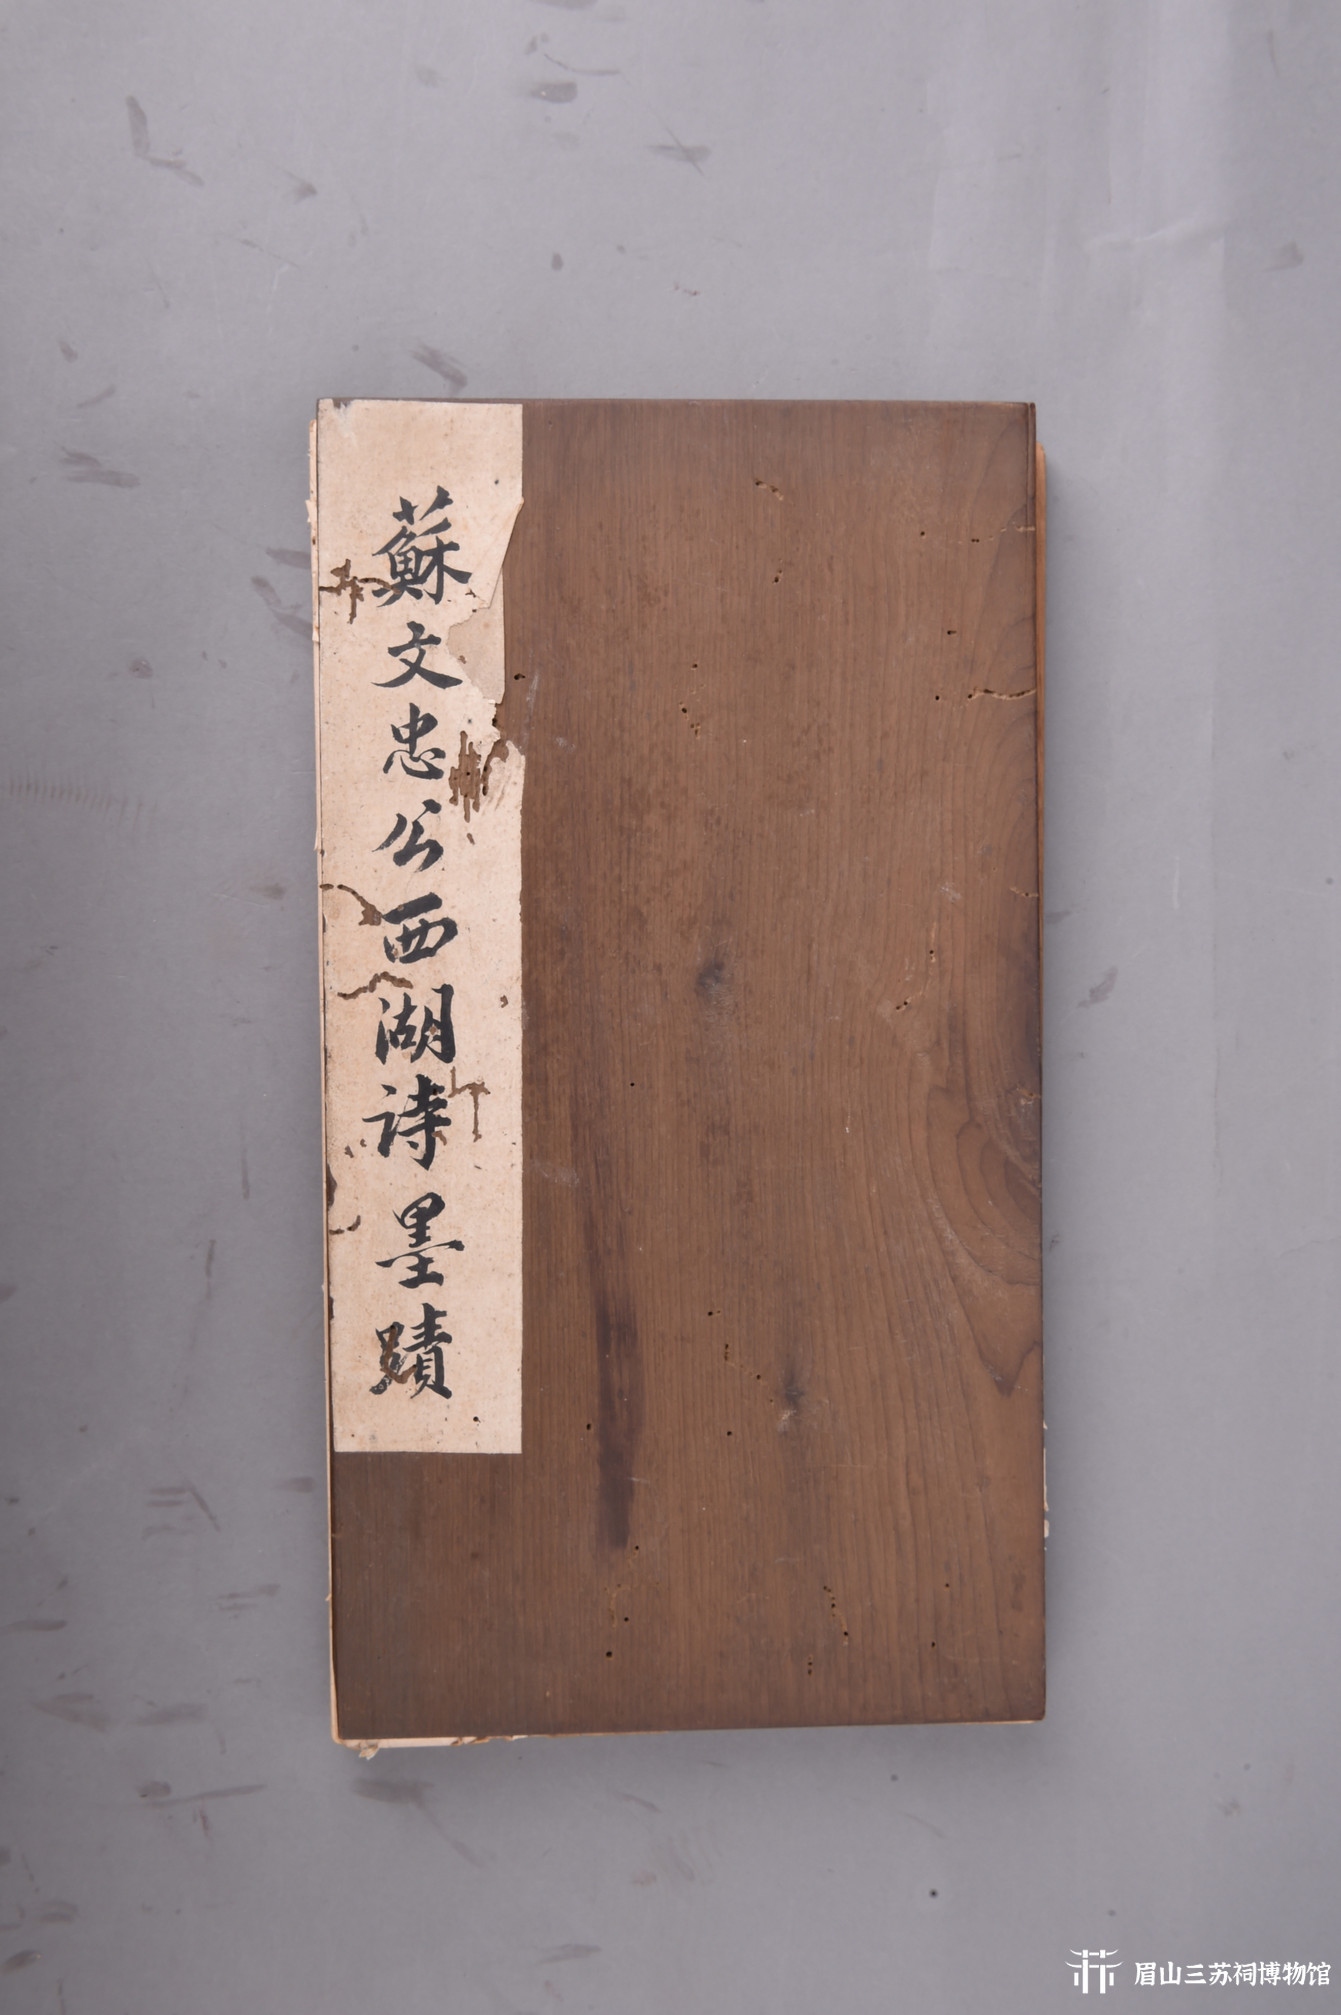 蘇文忠公西湖詩墨蹟
眉山三苏祠博物馆